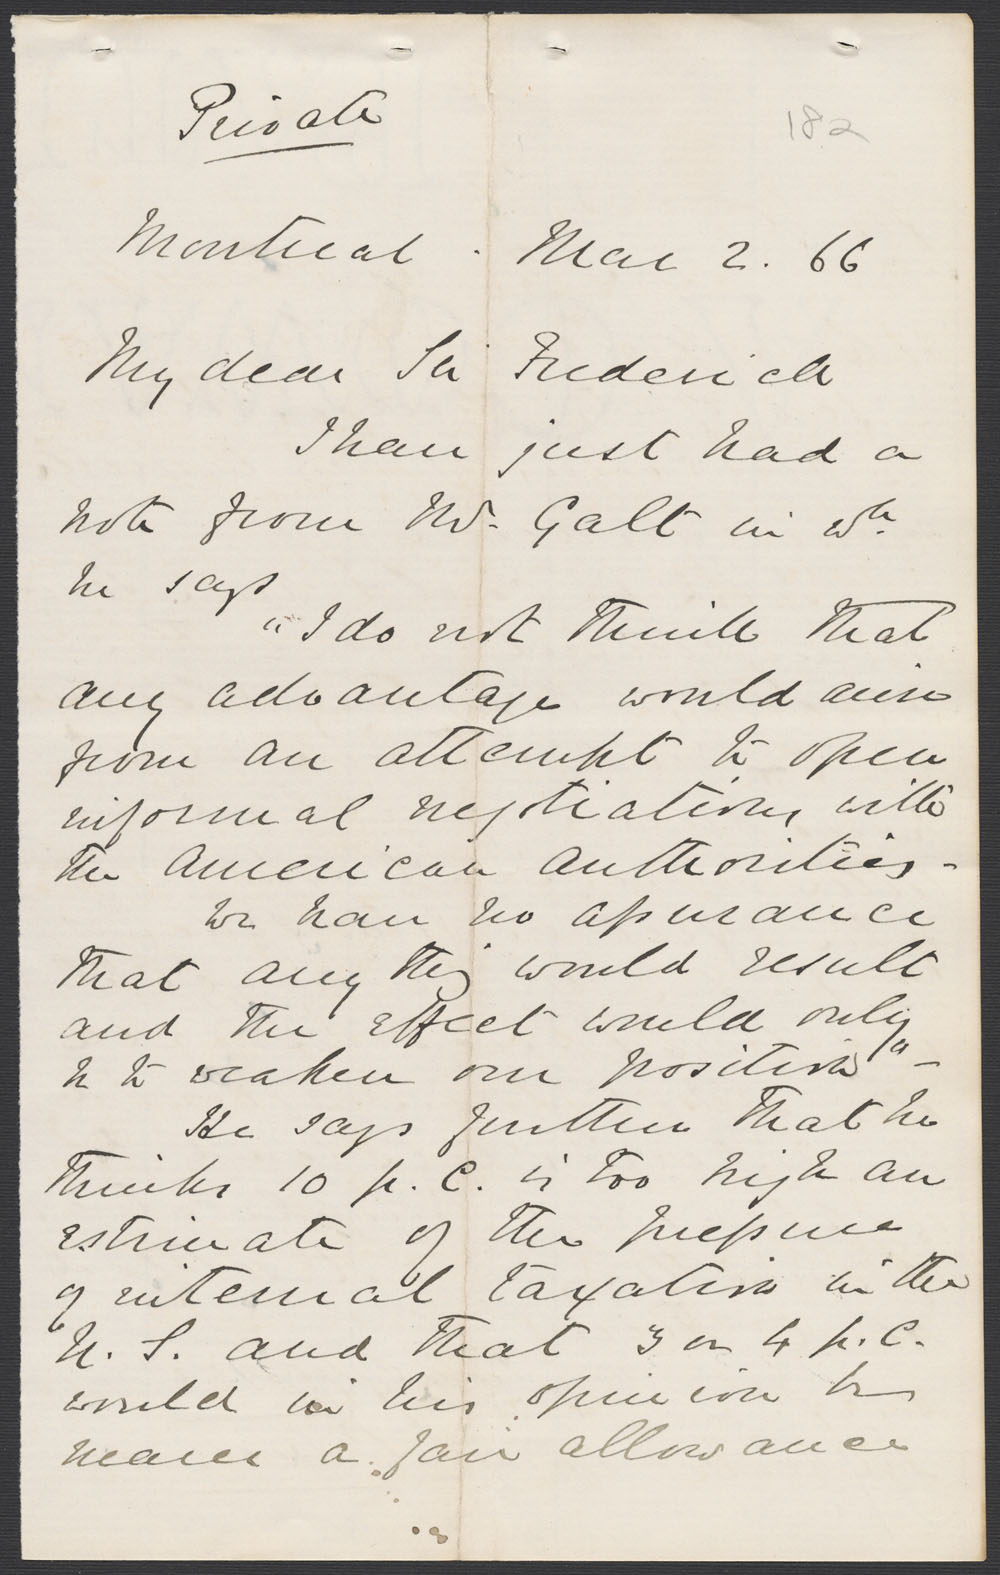 Private
182
Montreal. Mar 2. 66
My dear Sir Frederick
I have just had a
note from Mr. Galt in wh.
he says
"I do not think that
any advantage would arise
from an attempt to open
informal negotiations with
the American authorities -
We have no assurance
that anything would result
and the effect would only
be to weaken our position" -
He says further that he
thinks 10 p.c. is too high an
estimate of the pressure
of internal taxation in the
U.S. and that 3 or 4 p.c.
would in his opinion be
nearer a fair allowance